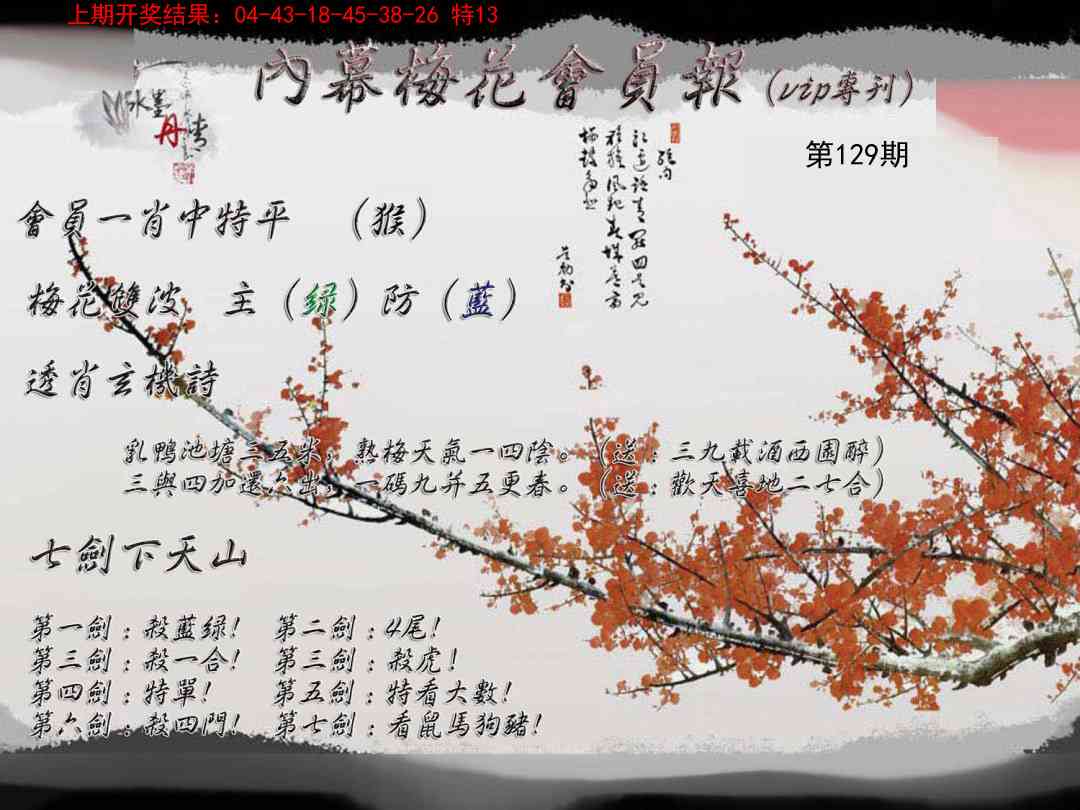 上期开奖结果：04-43-18-45-38-26 特13
內幕梅花會員報(vip專刊)
水墨丹青
第129期
會員一肖中特平 （猴）
梅花雙波 主（绿）防（藍）
透肖玄機詩
乳鴨池塘三五米，熟梅天氣一四陰。（送：三九載酒西園醉）
三與四加還六出，一碼九并五更春。（送：歡天喜地二七合）
七劍下天山
第一劍：殺藍绿！ 第二劍：4尾！
第三劍：殺一合！ 第三劍：殺虎！
第四劍：特單！ 第五劍：特看大數！
第六劍：殺四門！ 第七劍：看鼠馬狗豬！